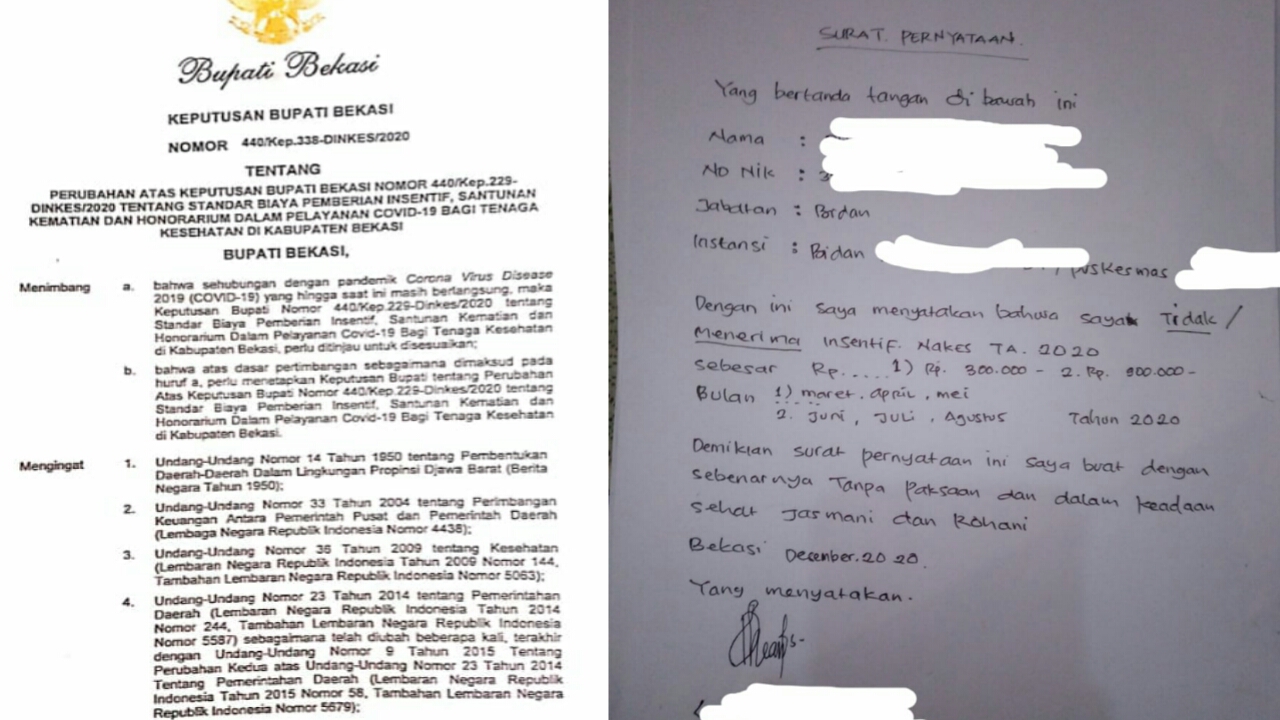 Bupati Bekasi
KEPUTUSAN BUPATI BEKASI
NOMOR 440/Kep.338-DINKES/2020
TENTANG
PERUBAHAN ATAS KEPUTUSAN BUPATI BEKASI NOMOR 440/Kep.229-
DINKES/2020 TENTANG STANDAR BIAYA PEMBERIAN INSENTIF, SANTUNAN
KEMATIAN DAN HONORARIUM DALAM PELAYANAN COVID-19 BAGI TENAGA
KESEHATAN DI KABUPATEN BEKASI
BUPATI BEKASI,
Menimbang a. bahwa sehubungan dengan pandemik Corona Virus Disease
2019 (COVID-19) yang hingga saat ini masih berlangsung, maka
Keputusan Bupati Nomor 440/Kep.229-Dinkes/2020 tentang
Standar Biaya Pemberian Insentif, Santunan Kematian dan
Honorarium Dalam Pelayanan Covid-19 Bagi Tenaga Kesehatan
di Kabupaten Bekasi, perlu ditinjau untuk disesuaikan;
b. bahwa atas dasar pertimbangan sebagaimana dimaksud pada
huruf a, perlu menetapkan Keputusan Bupati tentang Perubahan
Atas Keputusan Bupati Nomor 440/Kep.229-Dinkes/2020 tentang
Standar Biaya Pemberian Insentif, Santunan Kematian dan
Honorarium Dalam Pelayanan Covid-19 Bagi Tenaga Kesehatan
di Kabupaten Bekasi.
Mengingat 1. Undang-Undang Nomor 14 Tahun 1950 tentang Pembentukan
Daerah-Daerah Dalam Lingkungan Propinsi Djawa Barat (Berita
Negara Tahun 1950);
2. Undang-Undang Nomor 33 Tahun 2004 tentang Perimbangan
Keuangan Antara Pemerintah Pusat dan Pemerintah Daerah
(Lembaga Negara Republik Indonesia Nomor 4438);
3. Undang-Undang Nomor 36 Tahun 2009 tentang Kesehatan
(Lembaran Negara Republik Indonesia Tahun 2009 Nomor 144,
Tambahan Lembaran Negara Republik Indonesia Nomor 5063);
4. Undang-Undang Nomor 23 Tahun 2014 tentang Pemerintahan
Daerah (Lembaran Negara Republik Indonesia Tahun 2014
Nomor 244, Tambahan Lembaran Negara Republik Indonesia
Nomor 5587) sebagaimana telah diubah beberapa kali, terakhir
dengan Undang-Undang Nomor 9 Tahun 2015 Tentang
Perubahan Kedua atas Undang-Undang Nomor 23 Tahun 2014
Tentang Pemerintahan Daerah (Lembaran Negara Republik
Indonesia Tahun 2015 Nomor 58, Tambahan Lembaran Negara
Republik Indonesia Nomor 5679);
SURAT. PERNYATAAN.
Yang bertanda tangan di bawah ini
Nama :
No Nik : 3
Jabatan : Bidan
Instansi : Bidan puskesmas
Dengan ini saya menyatakan bahwa saya Tidak /
Menerima Insentif. Nakes TA. 2020
sebesar Rp..... 1) Rp. 300.000 - 2. Rp. 900.000-
Bulan 1) maret. april, mei
2. Juni, Juli, Agustus Tahun 2020
Demikian surat pernyataan ini saya buat dengan
sebenarnya Tanpa paksaan dan dalam keadaan
sehat Jasmani dan Rohani
Bekasi Desember.2020.
Yang menyatakan.